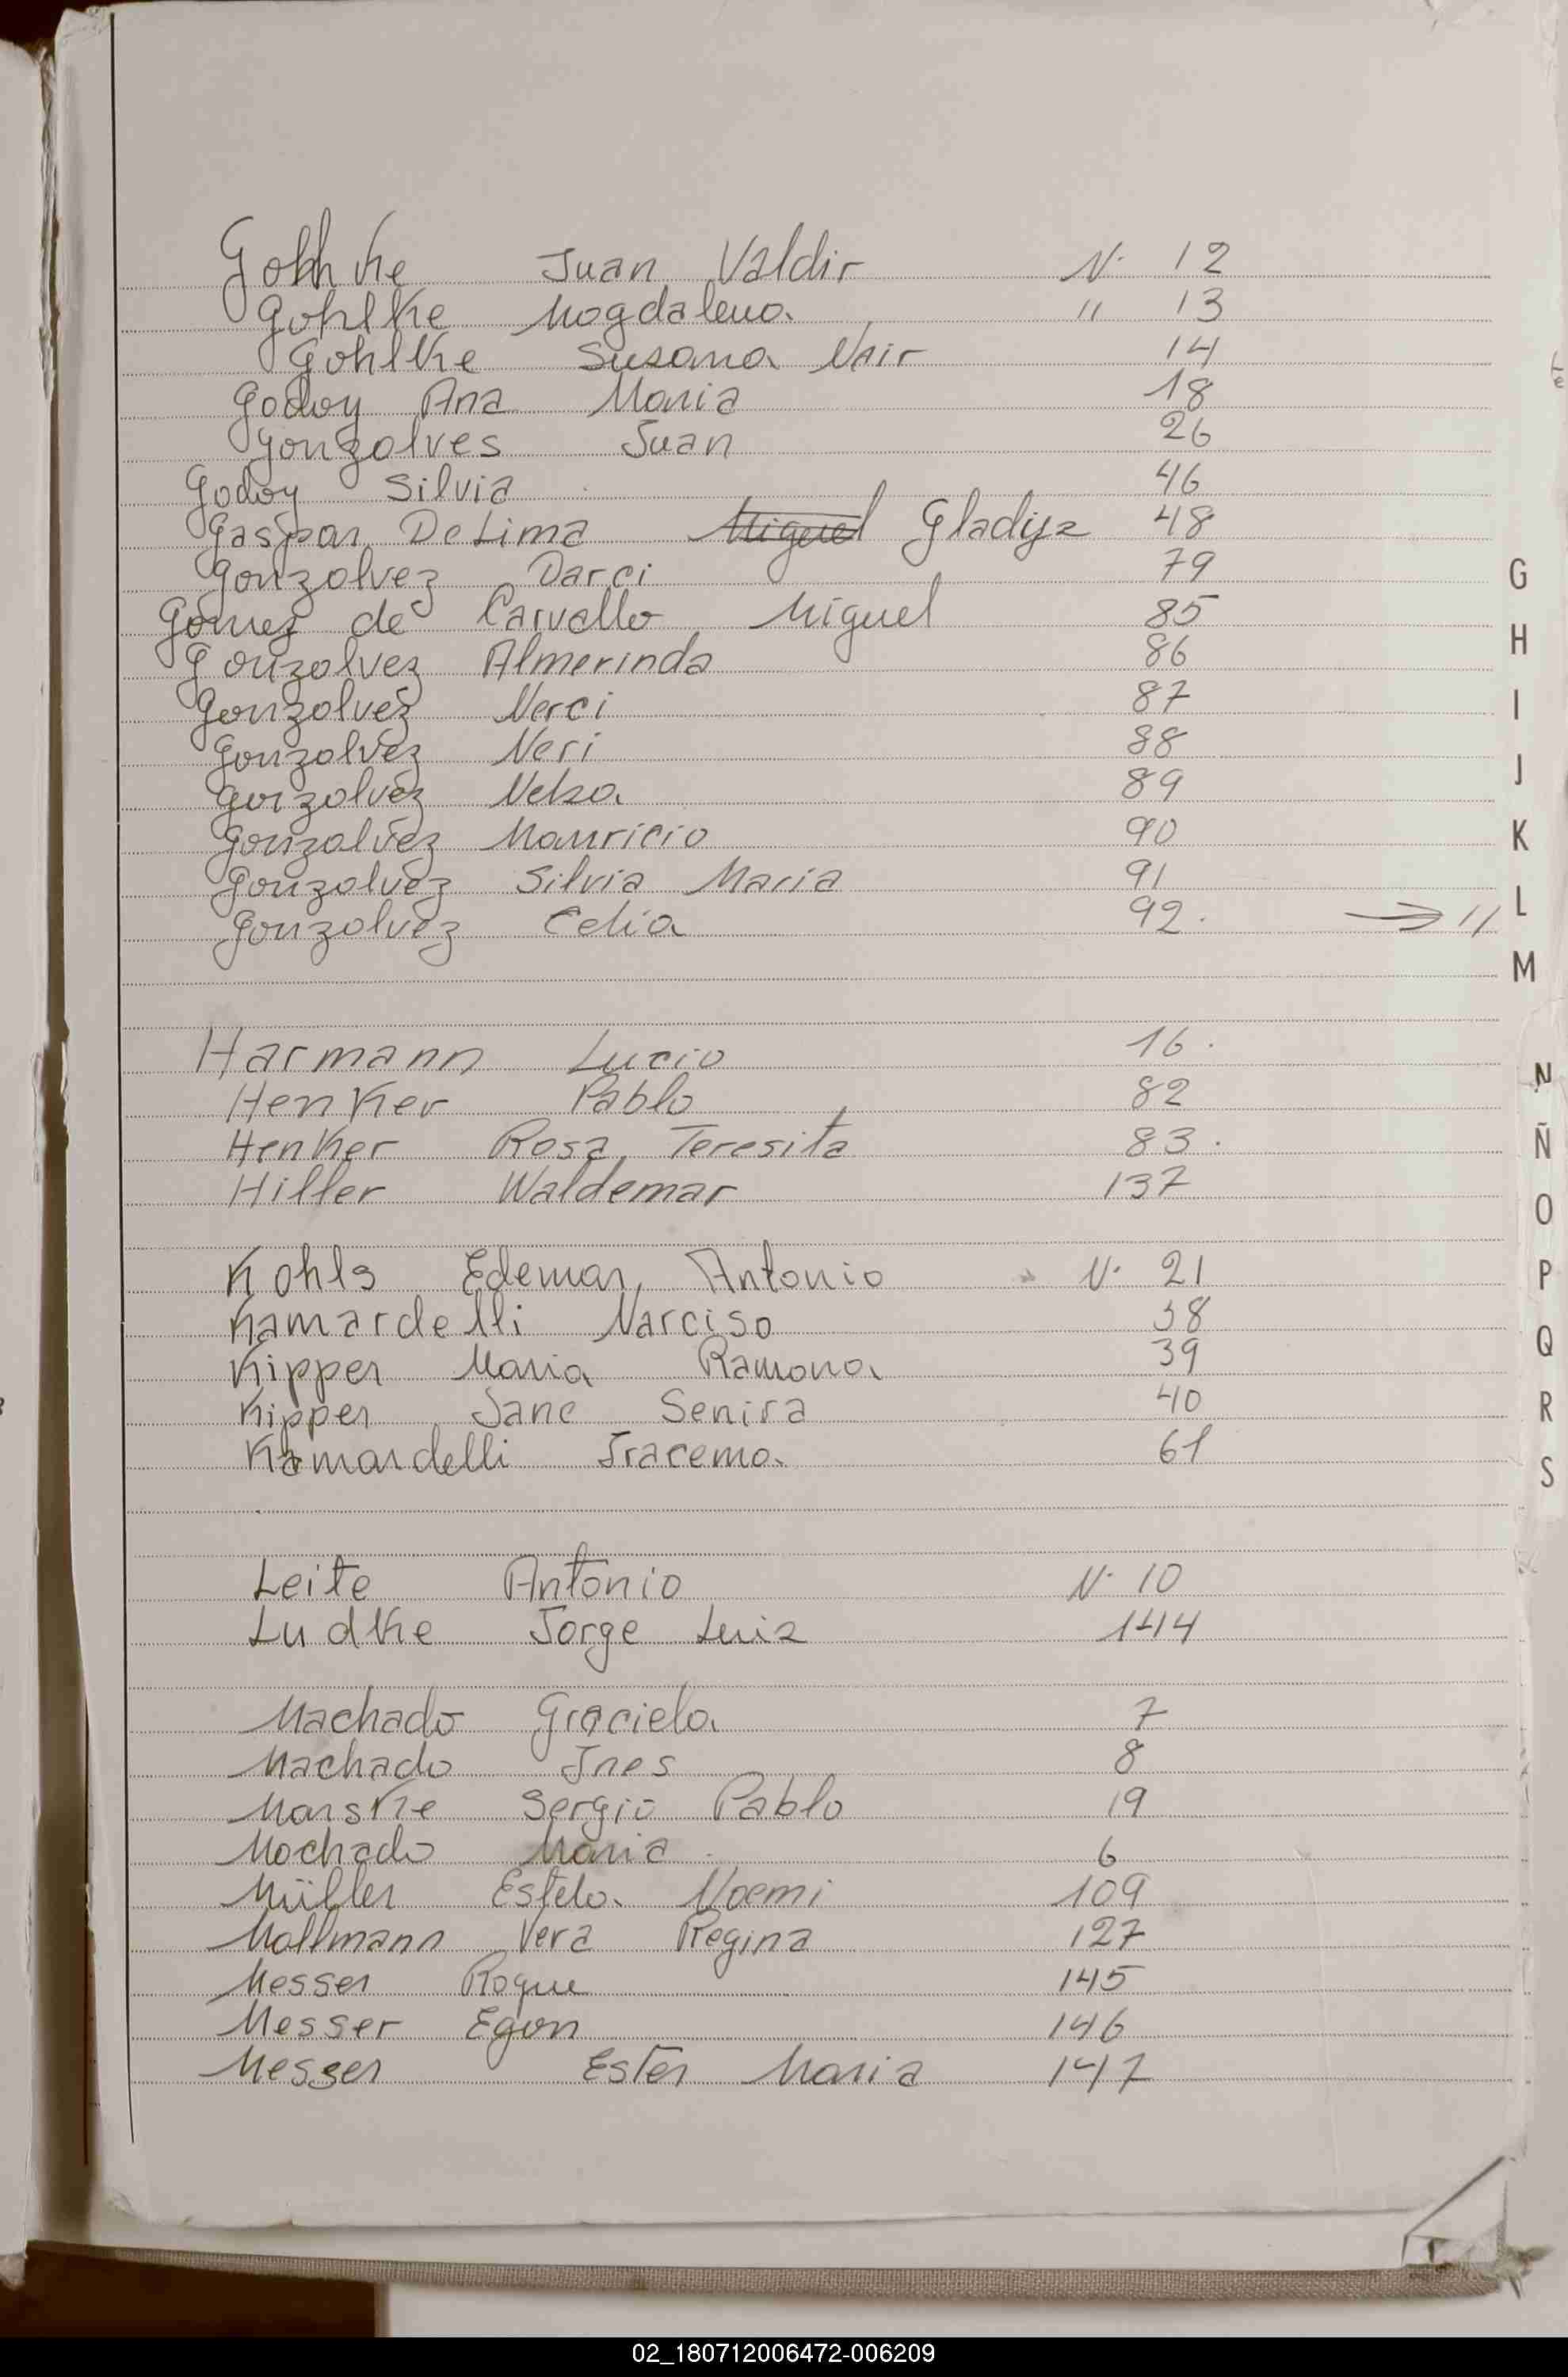 Gohlke Juan Valdir N. 12
Gohlke Magdalena " 13
Gohlke Susana Nair 14
Godoy Ana Maria 18
Gonzalves Juan 26
Godoy Silvia 46
Gaspar De Lima Miguel Gladyz 48
Gonzalvez Darci 79
Gomez de Carvallo Miguel 85
Gonzalvez Almerinda 86
Gonzalvez Nerci 87
Gonzalvez Neri 88
Gonzalvez Nelsa 89
Gonzalvez Mauricio 90
Gonzalvez Silvia Maria 91
Gonzalvez Celia 92. → //
Harmann Lucio 16.
Henker Pablo 82
Henker Rosa Teresita 83.
Hiller Waldemar 137
Kohls Edemar Antonio N. 21
Kamardelli Narciso 38
Kipper Maria Ramona 39
Kipper Jane Senira 40
Kamardelli Iracema 61
Leite Antonio N. 10
Ludke Jorge Luiz 144
Machado Graciela 7
Machado Ines 8
Marske Sergio Pablo 19
Machado Maria 6
Müller Estela Noemi 109
Mallmann Vera Regina 127
Messer Roque 145
Messer Egon 146
Messer Ester Maria 147
G
H
I
J
K
L
M
N
Ñ
O
P
Q
R
S
02_180712006472-006209